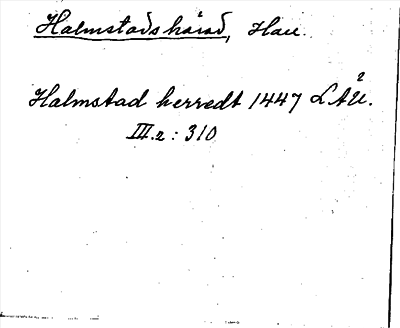 Halmstads härad, Hall.
Halmstad herredt 1447 LÄU².
III.2: 310